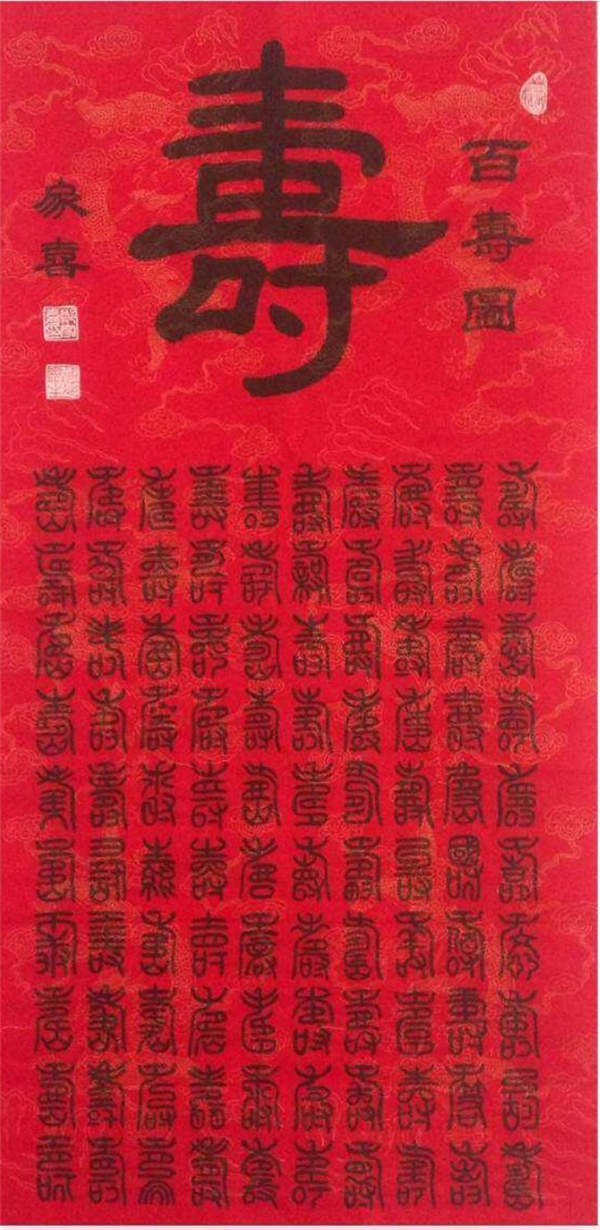 百壽圖
壽
壽壽壽壽壽壽壽壽壽壽
壽壽壽壽壽壽壽壽壽壽
壽壽壽壽壽壽壽壽壽壽
壽壽壽壽壽壽壽壽壽壽
壽壽壽壽壽壽壽壽壽壽
壽壽壽壽壽壽壽壽壽壽
壽壽壽壽壽壽壽壽壽壽
壽壽壽壽壽壽壽壽壽壽
壽壽壽壽壽壽壽壽壽壽
壽壽壽壽壽壽壽壽壽壽
家喜